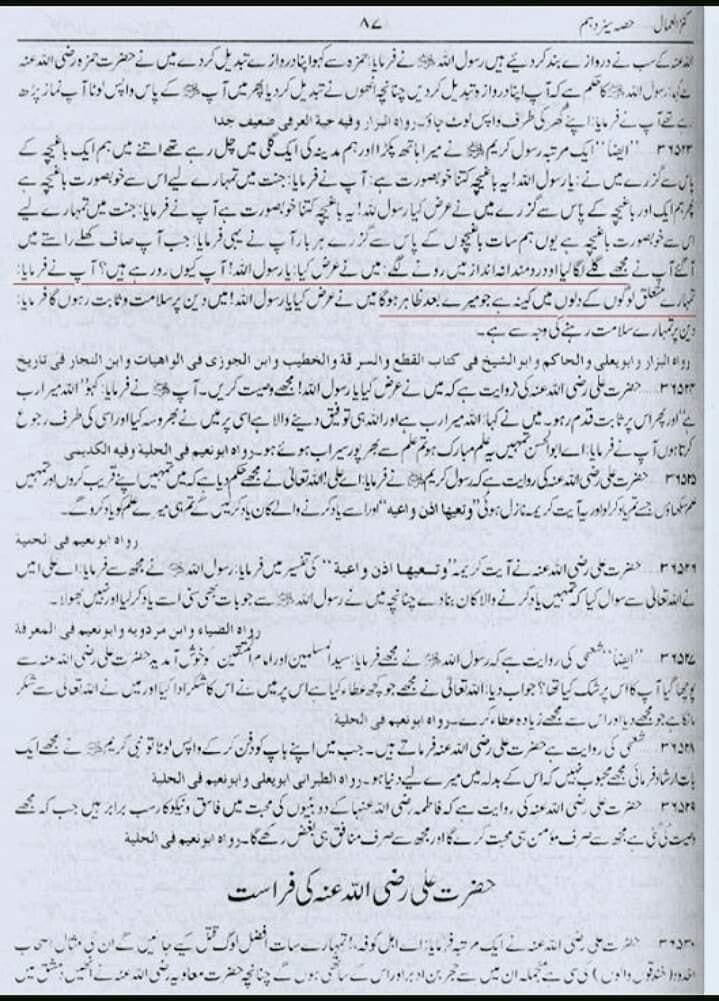 کنز العمال.....حصہ سیزدہم ۸۷
اللہ عنہ کے سب نے دروازے بند کردیئے ہیں رسول اللہ ﷺ نے فرمایا: حمزہ سے کہو اپنا دروازے تبدیل کردے میں نے حضرت حمزہ رضی اللہ عنہ
نے کہا: رسول اللہ ﷺ کا حکم ہے کہ آپ اپنا دروازہ تبدیل کردیں چنانچہ انھوں نے تبدیل کردیا پھر میں آپ ﷺ کے پاس واپس لوٹا آپ نماز پڑھ
رہے تھے آپ نے فرمایا: اپنے گھر کی طرف واپس لوٹ جاؤ۔ رواہ البزار وفیہ حبة العرفی ضعیف جدا
۳۶۵۲۳..... "ایضا" ایک مرتبہ رسول کریم ﷺ نے میرا ہاتھ پکڑا اور ہم مدینہ کی ایک گلی میں چل رہے تھے اتنے میں ہم ایک باغیچہ کے
پاس سے گزرے میں نے: یا رسول اللہ! یہ باغیچہ کتنا خوبصورت ہے آپ نے فرمایا: جنت میں تمہارے لیے اس سے خوبصورت باغیچہ ہے
پھر ہم ایک اور باغیچہ کے پاس سے گزرے میں نے عرض کیا رسول اللہ! یہ باغیچہ کتنا خوبصورت ہے آپ نے فرمایا: جنت میں تمہارے لیے
اس سے خوبصورت باغیچہ ہے یوں ہم سات باغیچوں کے پاس سے گزرے ہر بار آپ نے یہی فرمایا: جب آپ صاف کھلے راستے میں
آ گئے آپ نے مجھے گلے لگا لیا اور دردمندانہ انداز میں رونے لگے: میں نے عرض کیا: یا رسول اللہ! آپ کیوں رو رہے ہیں؟ آپ نے فرمایا:
تمہارے متعلق لوگوں کے دلوں میں کینہ ہے جو میرے بعد ظاہر ہوگا میں نے عرض کیا یا رسول اللہ! میں دین پر سلامت وثابت رہوں گا فرمایا:
دین پر تمہارے سلامت رہنے کی وجہ سے ہے۔
رواہ البزار وابویعلی والحاکم وابوالشیخ فی کتاب القطع والسرقة والخطیب وابن الجوزی فی الواھیات وابن النجار فی تاریخ
۳۶۵۲۴..... حضرت علی رضی اللہ عنہ کی روایت ہے کہ میں نے عرض کیا یا رسول اللہ! مجھے وصیت کریں۔ آپ ﷺ نے فرمایا: کہو "اللہ میرا رب
ہے" اور پھر اس پر ثابت قدم رہو۔ میں نے کہا: اللہ میرا رب ہے اور اللہ ہی توفیق دینے والا ہے اسی پر میں نے بھروسہ کیا اور اسی کی طرف رجوع
کرتا ہوں آپ نے فرمایا: اے ابوالحسن تمہیں یہ علم مبارک ہو تم علم سے بھرپور سیراب ہوئے ہو۔ رواہ ابونعیم فی الحلیة وفیہ الکدیمی
۳۶۵۲۵..... حضرت علی رضی اللہ عنہ کی روایت ہے کہ رسول کریم ﷺ نے فرمایا: اے علی! اللہ تعالیٰ نے مجھے حکم دیا ہے کہ میں تمہیں اپنے قریب کروں اور تمہیں
علم سکھاؤں جسے تم یاد کرلو اور یہ آیت کریمہ نازل ہوئی "وتعیھا اذن واعیہ" اور اسے یاد کرنے والے کان یاد کریں گے تم ہی میرے علم کو یاد کرو گے۔
رواہ ابونعیم فی الحلیة
۳۶۵۲۶..... حضرت علی رضی اللہ عنہ نے آیت کریمہ "وتعیھا اذن واعیة" کی تفسیر میں فرمایا: رسول اللہ ﷺ نے مجھ سے فرمایا: اے علی! میں
نے اللہ تعالیٰ سے سوال کیا کہ تمہیں یاد کرنے والا کان بنا دے چنانچہ میں نے رسول اللہ ﷺ سے جو بات بھی سنی اسے یاد کرلیا اور نہیں بھولا۔
رواہ الضیاء وابن مردویہ وابونعیم فی المعرفة
۳۶۵۲۷..... "ایضا" شعبی کی روایت ہے کہ رسول اللہ ﷺ نے مجھے فرمایا: سید المسلمین اور امام المتقین کو خوش آمدید حضرت علی رضی اللہ عنہ سے
پوچھا گیا آپ کا اس پر شک کیا تھا؟ جواب دیا: اللہ تعالیٰ نے مجھے جو کچھ عطاء کیا ہے اس پر میں نے اس کا شکر ادا کیا اور میں نے اللہ تعالیٰ سے شکر
مانگا ہے جو مجھے دیا اور اس سے مجھے زیادہ عطاء کرے۔ رواہ ابونعیم فی الحلیة
۳۶۵۲۸..... شعبی کی روایت ہے حضرت علی رضی اللہ عنہ فرماتے ہیں۔ جب میں اپنے باپ کو دفن کرکے واپس لوٹا تو نبی کریم ﷺ نے مجھے ایک
بات ارشاد فرمائی مجھے محبوب نہیں کہ اس کے بدلہ میں میرے لیے دنیا ہو۔ رواہ الطبرانی وابویعلی وابونعیم فی الحلیة
۳۶۵۲۹..... حضرت علی رضی اللہ عنہ کی روایت ہے کہ فاطمہ رضی اللہ عنہا کے دو بیٹوں کی محبت میں فاسق ونیکوکار سب برابر ہیں جب کہ مجھے
وصیت کی گئی ہے مجھ سے صرف مؤمن ہی محبت کرے گا اور مجھ سے صرف منافق ہی بغض رکھے گا۔ رواہ ابونعیم فی الحلیة
حضرت علی رضی اللہ عنہ کی فراست
۳۶۵۳۰..... حضرت علی رضی اللہ عنہ نے ایک مرتبہ فرمایا: اے اہل کوفہ! تمہارے سات افضل لوگ قتل کیے جائیں گے ان کی مثال اصحاب
اخدود (خندقوں والوں) کی سی ہے منجملہ ان میں سے حجر بن ادبر اور اس کے ساتھی ہوں گے چنانچہ حضرت معاویہ رضی اللہ عنہ نے انھیں دمشق میں